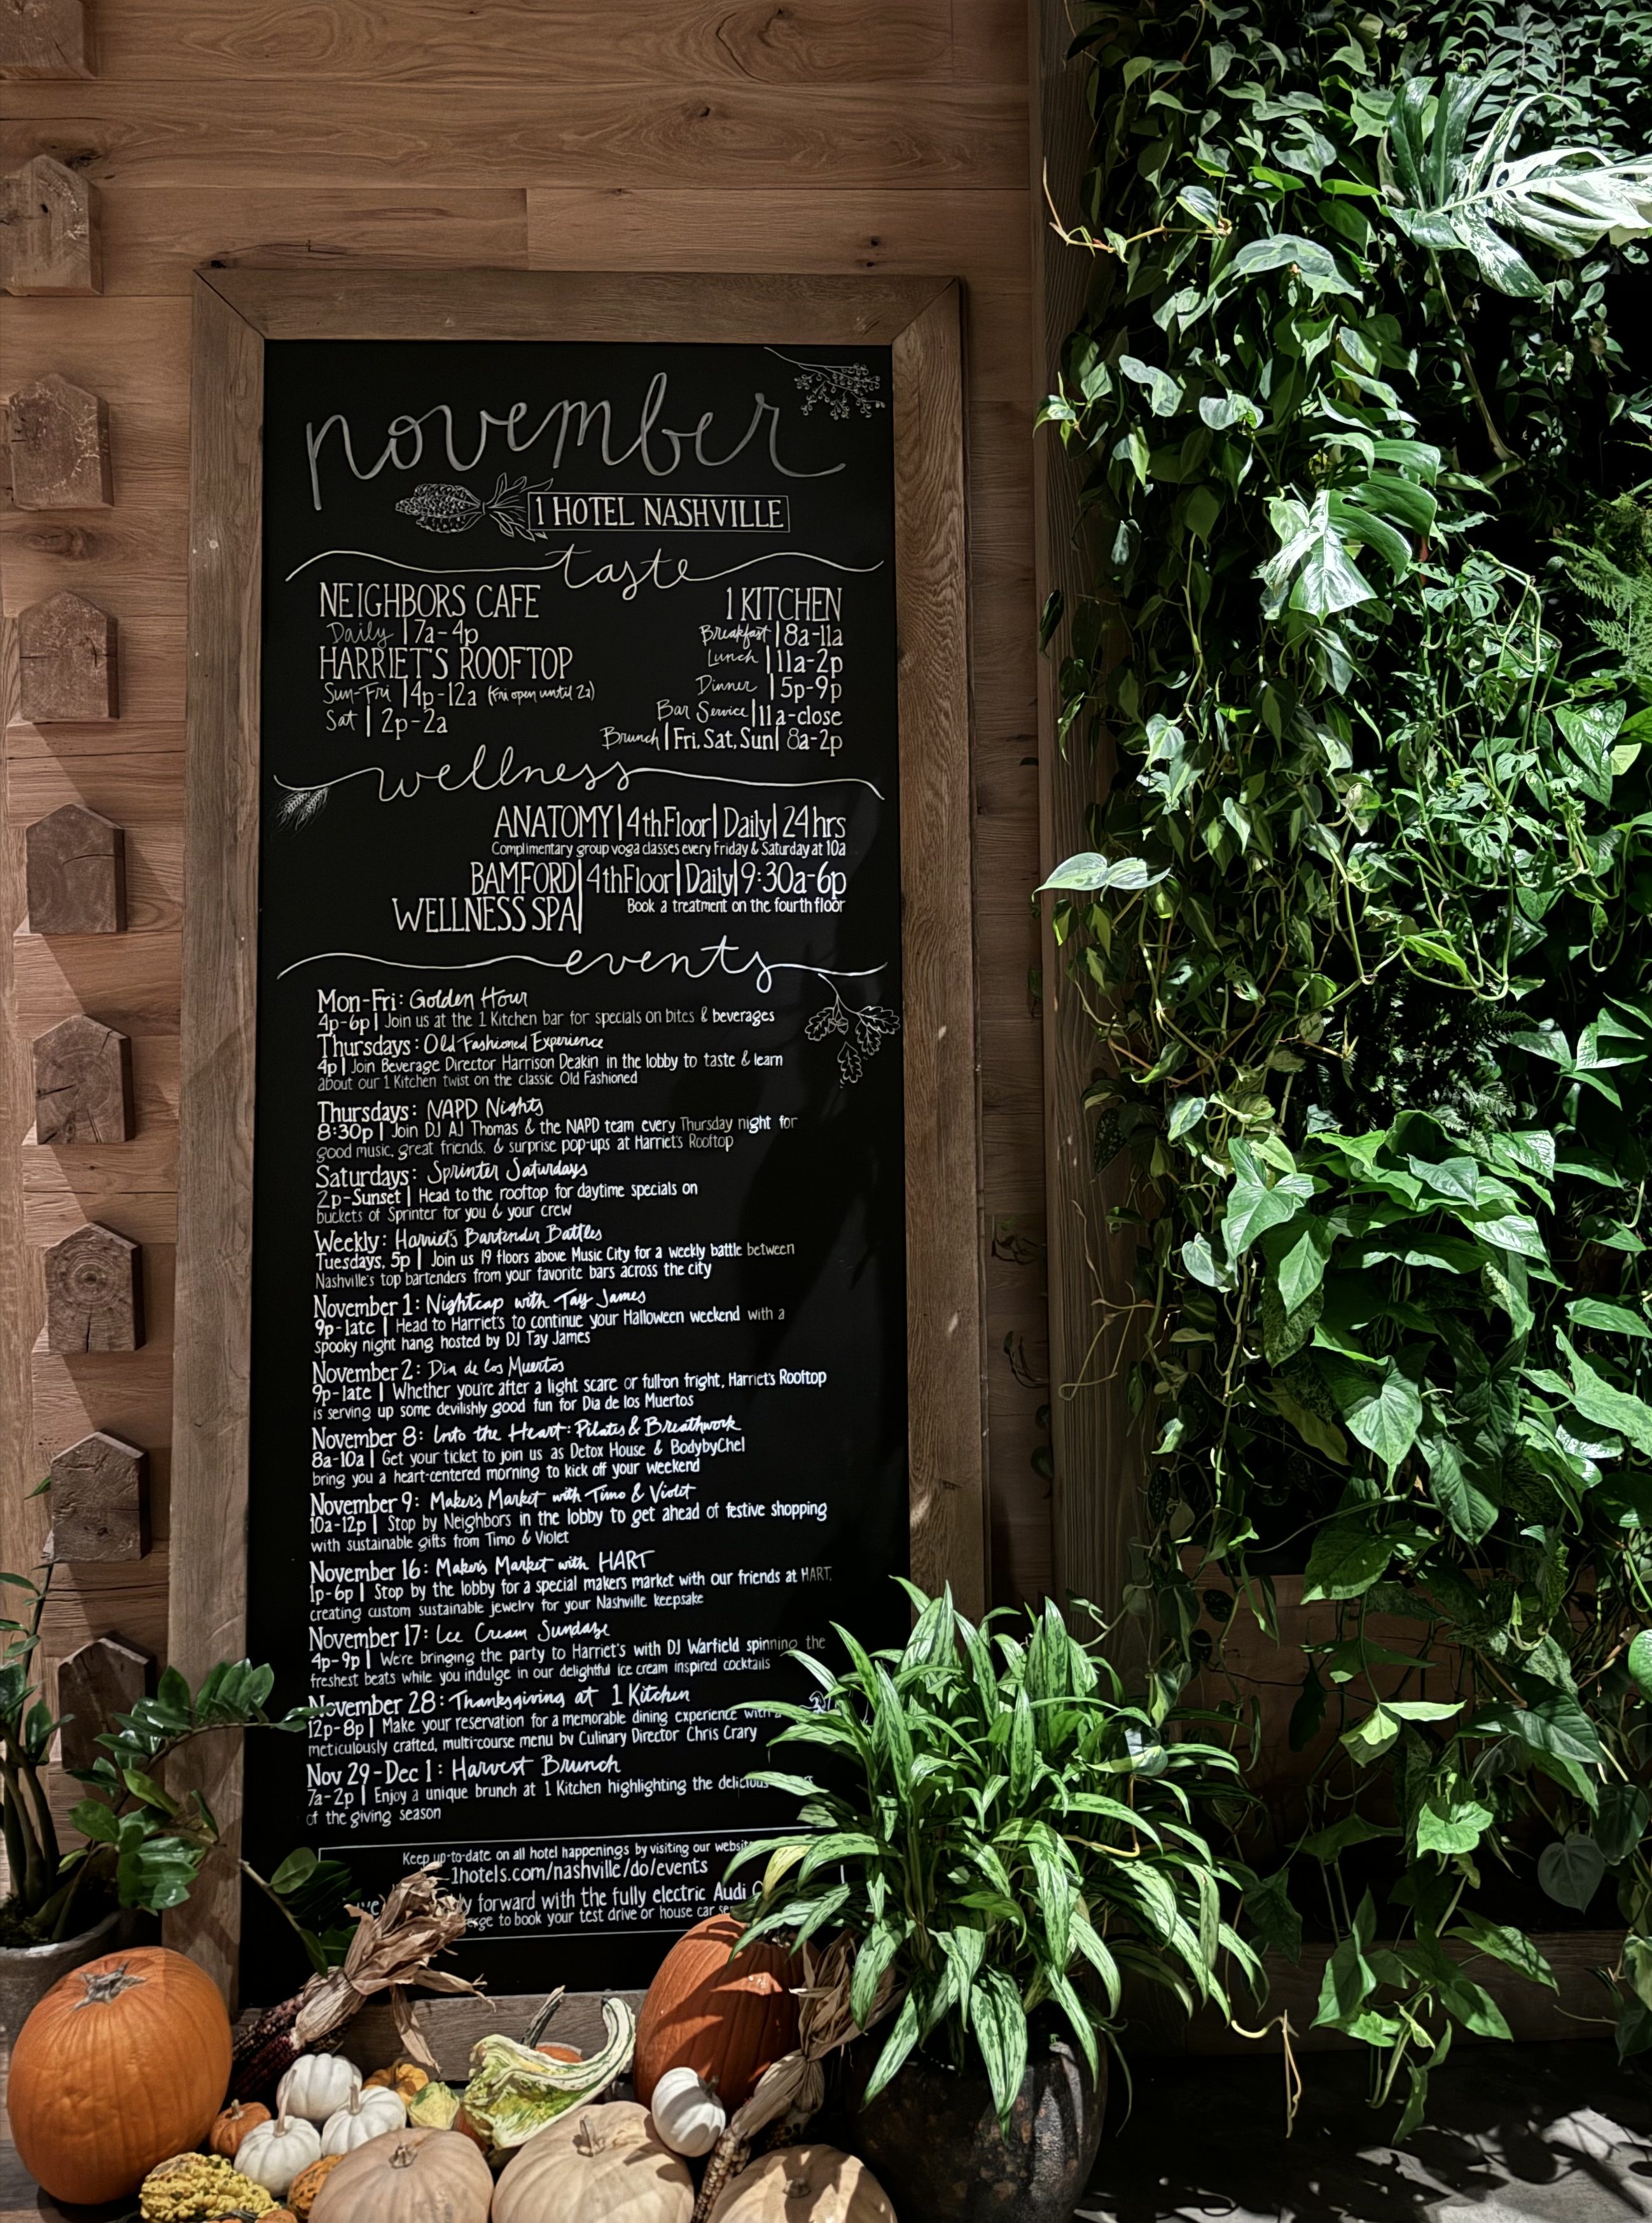 november
1 HOTEL NASHVILLE
taste
NEIGHBORS CAFE
Daily | 7a-4p
HARRIET'S ROOFTOP
Sun-Fri | 4p-12a (Fri open until 2a)
Sat | 2p-2a
1 KITCHEN
Breakfast | 8a-11a
Lunch | 11a-2p
Dinner | 5p-9p
Bar Service | 11a-close
Brunch | Fri, Sat, Sun | 8a-2p
wellness
ANATOMY | 4th Floor | Daily | 24hrs
Complimentary group yoga classes every Friday & Saturday at 10a
BAMFORD WELLNESS SPA | 4th Floor | Daily | 9:30a-6p
Book a treatment on the fourth floor
events
Mon-Fri: Golden Hour
4p-6p | Join us at the 1 Kitchen bar for specials on bites & beverages
Thursdays: Old Fashioned Experience
4p | Join Beverage Director Harrison Deakin in the lobby to taste & learn
about our 1 Kitchen twist on the classic Old Fashioned
Thursdays: NAPD Nights
8:30p | Join DJ AJ Thomas & the NAPD team every Thursday night for
good music, great friends, & surprise pop-ups at Harriet's Rooftop
Saturdays: Sprinter Saturdays
2p-Sunset | Head to the rooftop for daytime specials on
buckets of Sprinter for you & your crew
Weekly: Harriet's Bartender Battles
Tuesdays, 5p | Join us 19 floors above Music City for a weekly battle between
Nashville's top bartenders from your favorite bars across the city
November 1: Nightcap with Tay James
9p-late | Head to Harriet's to continue your Halloween weekend with a
spooky night hang hosted by DJ Tay James
November 2: Dia de los Muertos
9p-late | Whether you're after a light scare or full-on fright, Harriet's Rooftop
is serving up some devilishly good fun for Dia de los Muertos
November 8: Into the Heart: Pilates & Breathwork
8a-10a | Get your ticket to join us as Detox House & BodybyChel
bring you a heart-centered morning to kick off your weekend
November 9: Maker's Market with Timo & Violet
10a-12p | Stop by Neighbors in the lobby to get ahead of festive shopping
with sustainable gifts from Timo & Violet
November 16: Maker's Market with HART
1p-6p | Stop by the lobby for a special makers market with our friends at HART,
creating custom sustainable jewelry for your Nashville keepsake
November 17: Ice Cream Sundaze
4p-9p | We're bringing the party to Harriet's with DJ Warfield spinning the
freshest beats while you indulge in our delightful ice cream inspired cocktails
November 28: Thanksgiving at 1 Kitchen
12p-8p | Make your reservation for a memorable dining experience with a
meticulously crafted, multi-course menu by Culinary Director Chris Crary
Nov 29-Dec 1: Harvest Brunch
7a-2p | Enjoy a unique brunch at 1 Kitchen highlighting the
of the giving season
Keep up-to-date on all hotel happenings by visiting our
1hotels.com/nashville/do/events
forward with the fully electric Audi
to book your test drive or house car